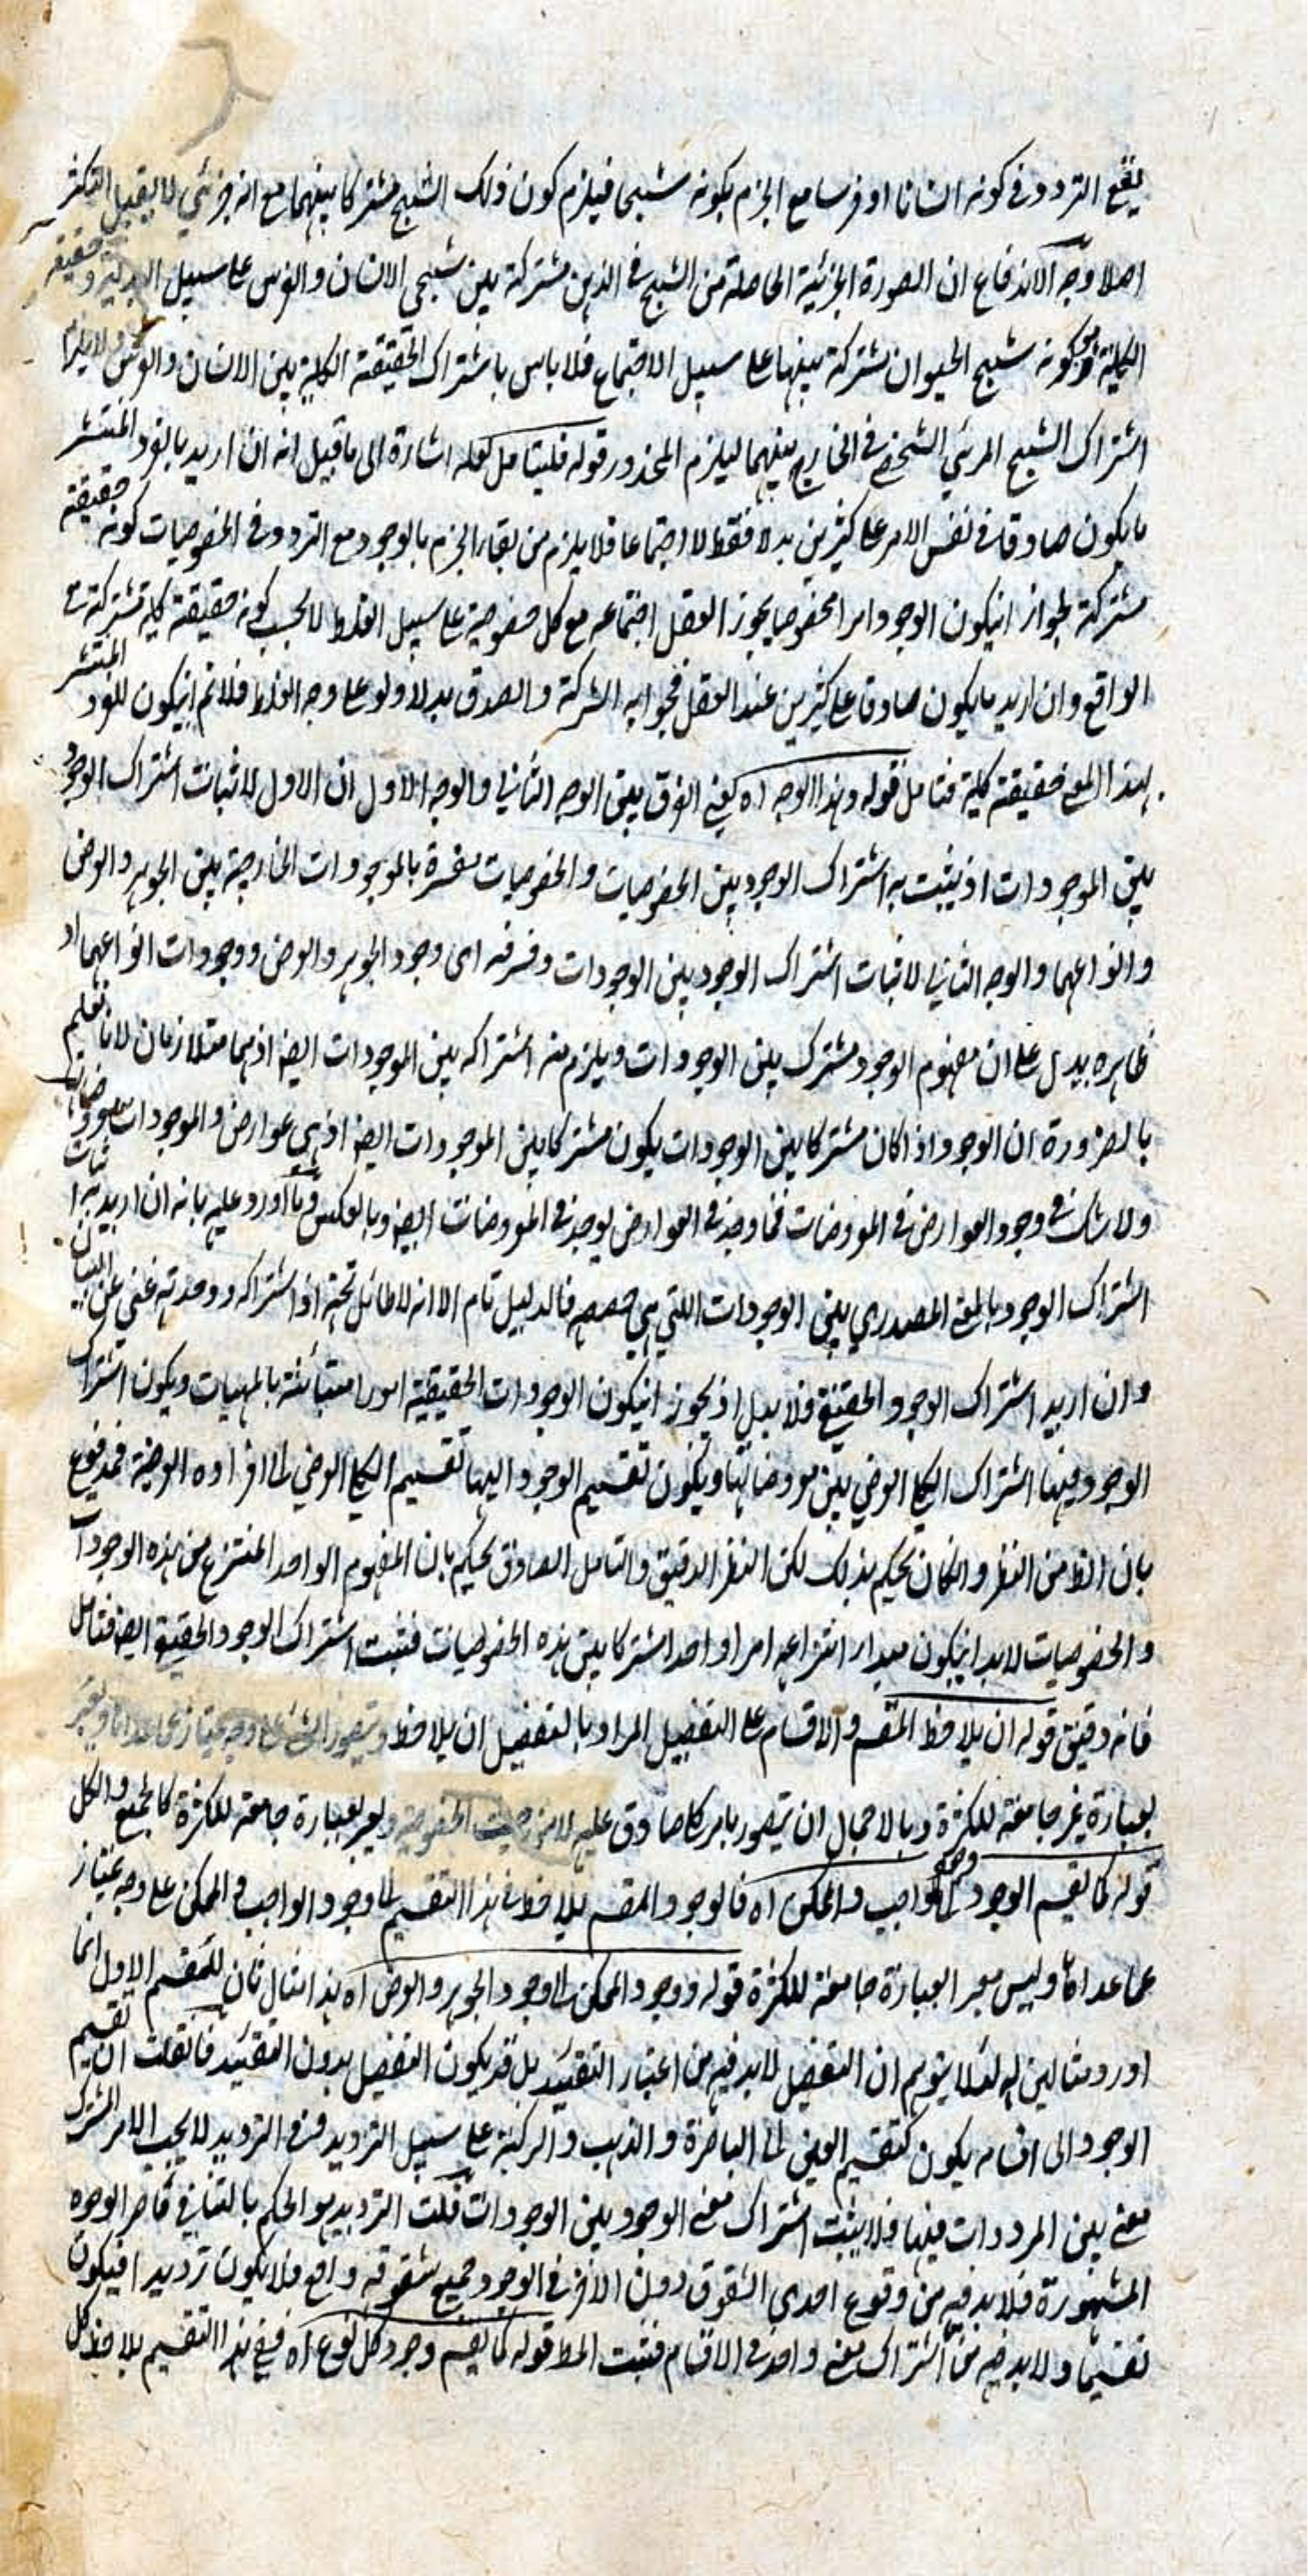 يقع التردد فى كونه انسانا او فرسا مع الجزم بكونه شبحا فيلزم كون ذلك الشبح مشتركا بينهما مع انه جزئي لا يقبل التكثر
اصلا وجه الاندفاع ان الصورة الجزئية الحاصلة من الشبح فى الذهن مشتركة بين شبحي الانسان والفرس على سبيل البدلية وحقيقة
الكلية كونه شبح الحيوان مشتركة بينهما على سبيل الاجتماع فلا باس باشتراك الحقيقة الكلية بين الانسان والفرس ولا يلزم
اشتراك الشبح المرئي الشخصي فى الخارج بينهما ليلزم المحذور قوله فليتامل لعله اشارة الى ما قيل انه ان اريد بالفرد المنتشر
ما يكون صادقا فى نفس الامر على كثيرين بدلا فقط لا اجتماعا فلا يلزم من بقاء الجزم بالوجود مع التردد فى الخصوصيات كونه حقيقة
مشتركة لجواز انيكون الوجود امرا مخصوصا يجوز العقل اجتماعه مع كل خصوصية على سبيل الغلط لا بحسب كونه حقيقة كلية مشتركة فى
الواقع وان اريد ما يكون صادقا على كثيرين عند العقل فجوابه الشركة والصدق بدلا ولو على وجه الغلط فلا تم انيكون للفرد المنتشر
بهذا المعنى حقيقة كلية فتامل قوله وهذا الوجه اه يعني الفرق بين الوجه الثاني والوجه الاول ان الاول لاثبات اشتراك الوجود
بين الموجودات اذ يثبت به اشتراك الوجود بين الخصوصيات والخصوصيات مفسرة بالموجودات الخارجية بين الجوهر والعرض
وانواعهما والوجه الثاني لاثبات اشتراك الوجود بين الوجودات وفسرت اى وجود الجوهر والعرض ووجودات انواعهما اذ
ظاهره يدل على ان مفهوم الوجود مشترك بين الوجودات ويلزم منه اشتراكه بين الموجودات ايضا اذ هما متلازمان لانا نعلم
بالضرورة ان الوجود اذا كان مشتركا بين الوجودات يكون مشتركا بين الموجودات ايضا اذ هى عوارض والموجودات معروضات
ولا شك فى وجود العوارض فى المعروضات فما وجد فى العوارض يوجد فى المعروضات ايضا وبالعكس وما اورد عليه بانه ان اريد به اثبات
اشتراك الوجود بالمعنى المصدري بين الوجودات اللتي هي حصصه فالدليل تام الا انه لا طائل تحته اذ اشتراكه ووحدته غني عن البيان
وان اريد اشتراك الوجود الحقيقي فلا يدل اذ يجوز انيكون الوجودات الحقيقية امورا متبائنة بالمهيات ويكون اشتراك
الوجود فيها اشتراك الكلي العرضي بين معروضاتها ويكون تقسيم الوجود اليها تقسيم الكلي العرضي الى افراده العرضية فمدفوع
بان الظ من النظر وان كان يحكم بذلك لكن النظر الدقيق والتامل الصادق يحكم بان المفهوم الواحد المنتزع من هذه الوجودات
والخصوصيات لا بد انيكون مبدا انتزاعه امرا واحدا مشتركا بين هذه الخصوصيات فثبت اشتراك الوجود الحقيقي ايضا فتامل
فانه دقيق قوله ان يلاحظ المقسم والاقسام على التفصيل المراد بالتفصيل ان يلاحظ ويتصور الشئ على وجه يمتاز عما عداه ويعبر
بعبارة غير جامعة للكثرة وبالاجمال ان يتصور بامر كلي صادق عليه لا من حيث الخصوصية ويعبر بعبارة جامعة للكثرة كالجميع والكل
قوله كما يقسم الوجود الى وجود الواجب والممكن اه فالوجود المقسم يلاحظ فى هذا التقسيم الى وجود الواجب والممكن على وجه يمتاز
عما عداه وليس معبرا بعبارة جامعة للكثرة قوله ووجود الممكن الى وجود الجوهر والعرض اه هذا مثال ثان للمقسم الاول انما
اورد مثالين له لئلا يتوهم ان التفصيل لا بد فيه من اعتبار التقييد بل قد يكون التفصيل بدون التقييد فان قلت ان تقسيم
الوجود الى اقسامه يكون كتقسيم العين الى الباصرة والذهب والركبة على سبيل الترديد وفى الترديد لا يجب الامر المشترك
معنى بين المرددات فيها فلا يثبت اشتراك معنى الوجود بين الوجودات قلت الترديد هو الحكم بالتنافي فى الوجوه
المشهورة فلا بد فيه من وقوع احدى الشقوق دون الاخر فى الوجود جميع شقوقه واقع فلا يكون ترديدا فيكون
تقسيما ولا بد فيه من اشتراك معنى واحد فى الاقسام فثبت المط قوله كما يقسم وجود كل نوع اه ففي هذا التقسيم يلاحظ كل